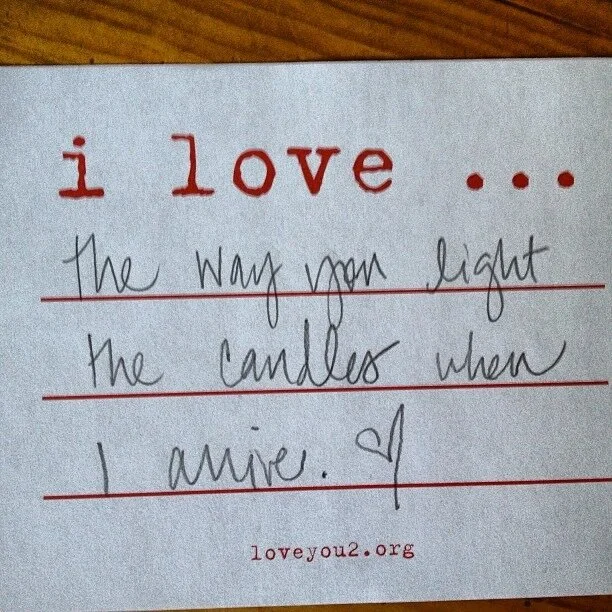 i love ...
the way you light
the candles when
I arrive. ♡
loveyou2.org